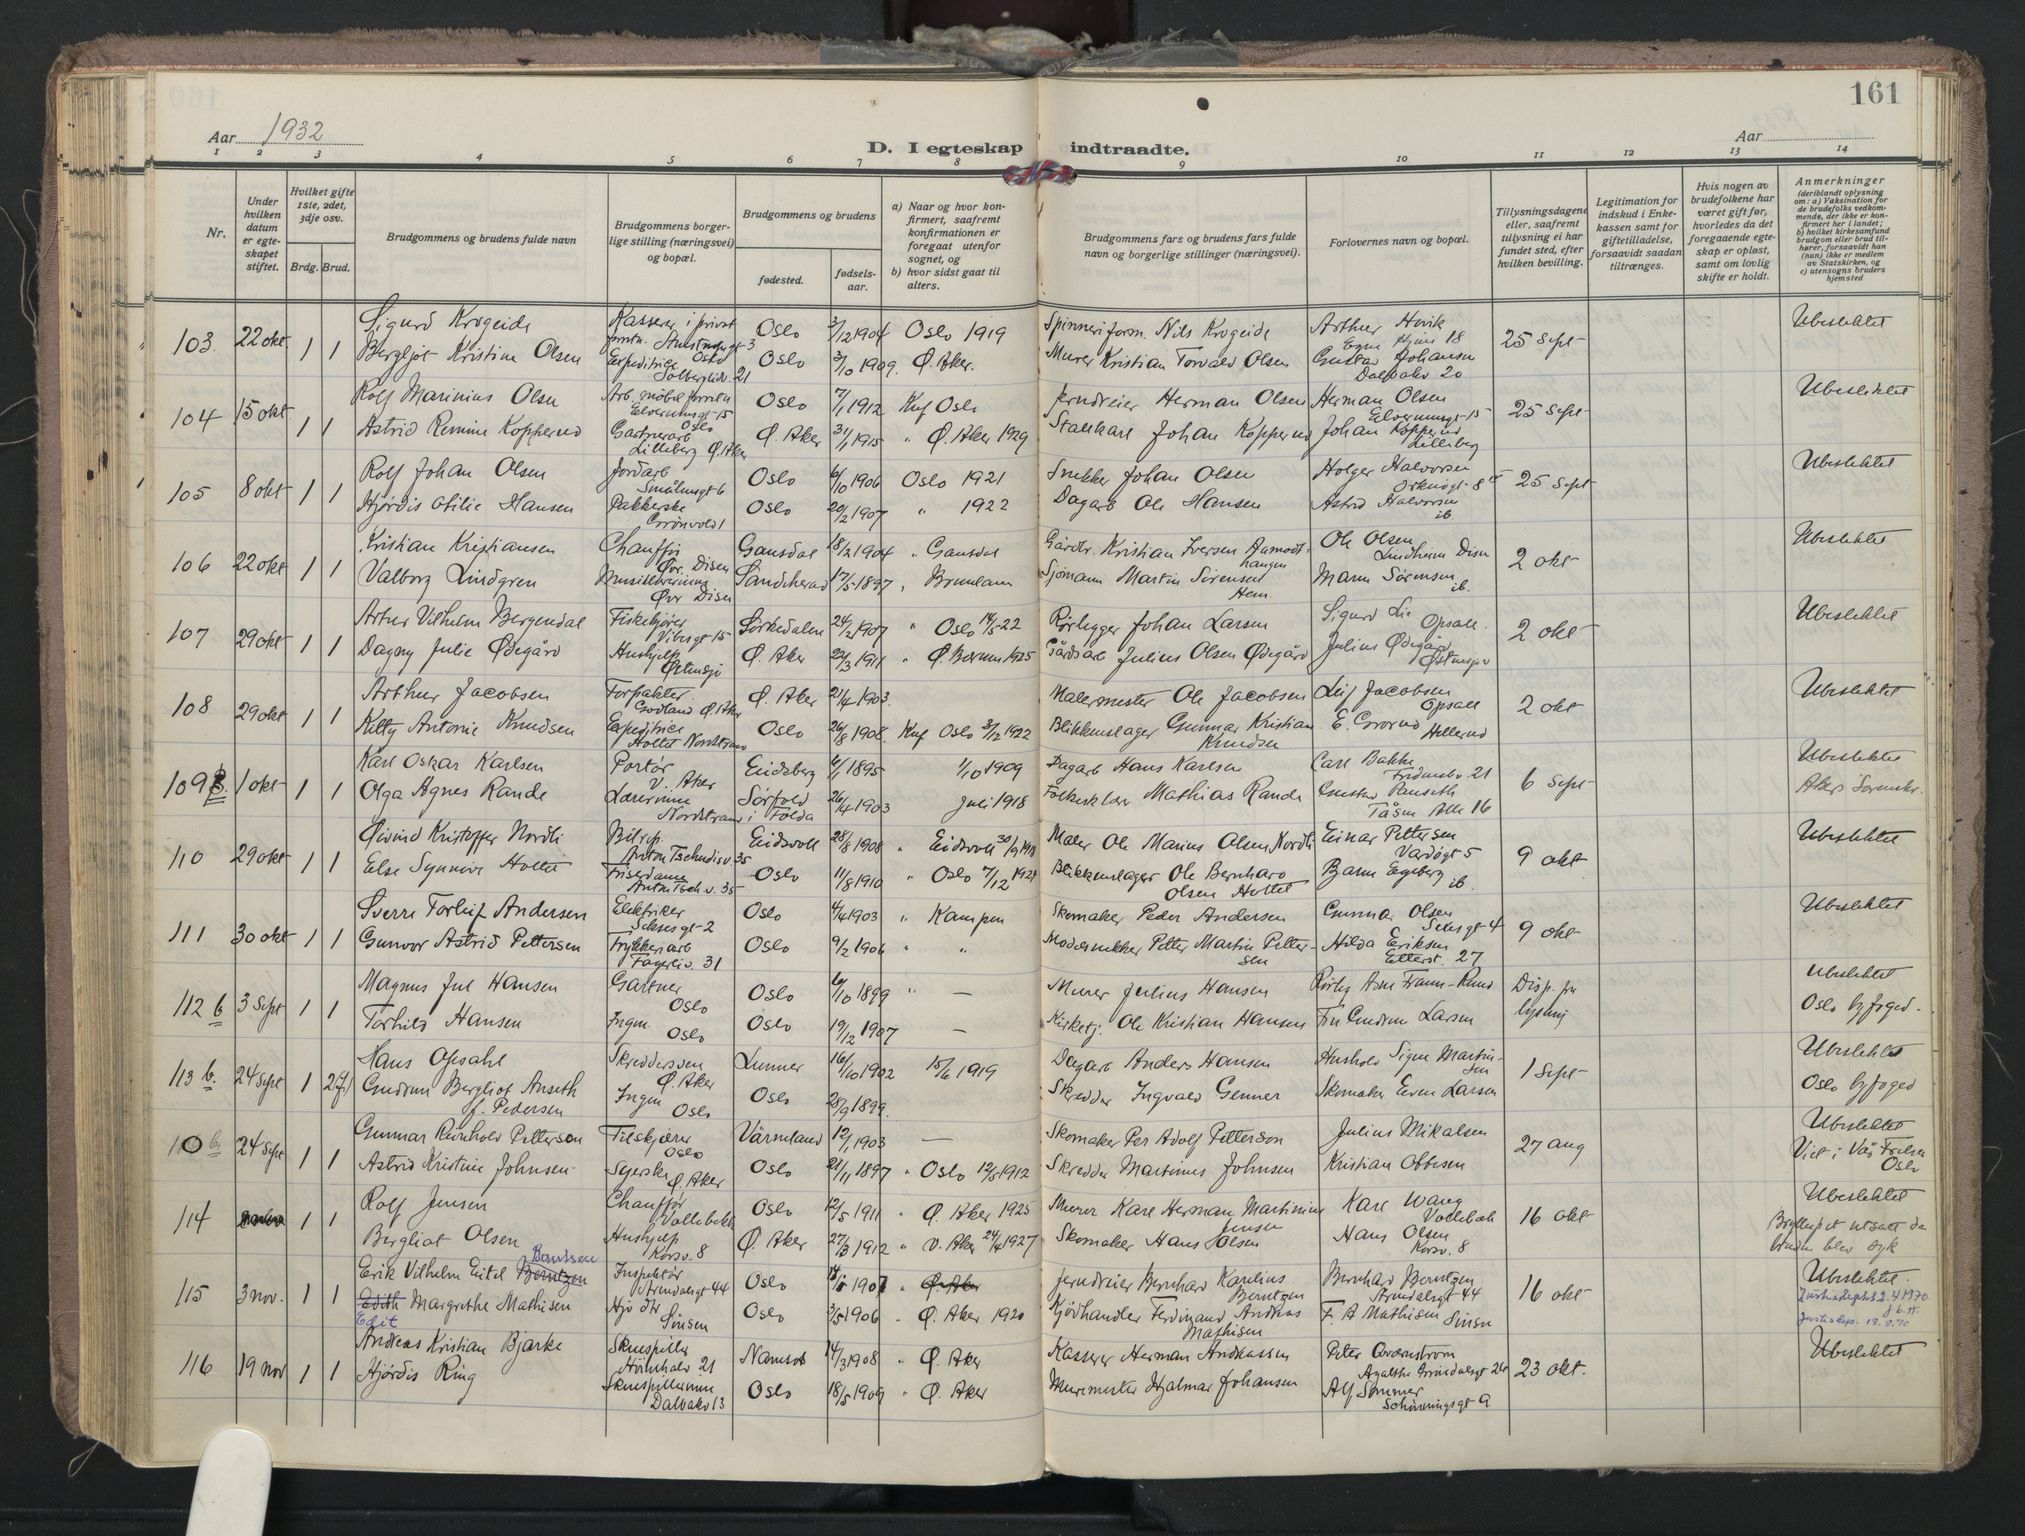 161
Aar 1932
Aar
D. I egteskap indtraadte.
1 2 3 4 5 6 7 8 9 10 11 12 13 14
Nr.
Under hvilken datum er egteskapet stiftet.
Hvilket gifte 1ste, 2det, 3dje osv.
Brdg. Brud.
Brudgommens og brudens fulde navn
Brudgommens borgerlige stilling (næringsvei) og bopæl.
Brudgommens og brudens
fødested.
fødselsaar.
a) Naar og hvor konfirmert, saafremt konfirmationen er foregaat utenfor sognet, og
b) hvor sidst gaat til alters.
Brudgommens fars og brudens fars fulde navn og borgerlige stillinger (næringsvei).
Forlovernes navn og bopæl.
Tillysningsdagene eller, saafremt tillysning ei har fundet sted, efter hvilken bevilling.
Legitimation for indskud i Enkekassen samt for giftetilladelse, forsaavidt saadan tiltrænges.
Hvis nogen av brudefolkene har været gift før, hvorledes da det foregaaende egteskap er opløst, samt om lovlig skifte er holdt.
Anmerkninger (deriblandt oplysning om: a) Vaksination for de brudefolks vedkommende, der ikke er konfirmert her i landet; b) hvilket kirkesamfund brudgom eller brud tilhører, forsaavidt han (hun) ikke er medlem av Statskirken, og c) utensogns bruders hjemsted
103 22 okt 1 Sigurd Krogeide Kasserer i privat Oslo 3/12 1904 Oslo 1919 Nils Krogeide Arthur Hvik 25 Sept Ubeslektet
1 Bergljot Kristine Olsen Expeditrice Solbergliv. 21 Oslo 3/10 1909 Ø. Aker. Murer Kristian Torvald Olsen Gustav Johansen Dalbakv 20
104 15 okt 1 Rolf Marinius Olsen Oslo 7/1 1912 Knf Oslo Jerndreier Herman Olsen Herman Olsen 25 Sept Ubeslektet
1 Astrid Kopperud Gartnerarb Lilleberg Ø. Aker Ø. Aker 31/1 1915 " Ø. Aker 1929 Stallkarl Johan Kopperud Johan Kopperud Lilleberg
105 8 okt 1 Rolf Johan Olsen Jordarb Smålensgt 6 Oslo 6/10 1906 Oslo 1921 Snekker Johan Olsen Holger Halvorsen 25 Sept Ubeslektet
1 Hjørdis Otilie Hansen Pakkerske Grønvold 1 Oslo 20/2 1907 " 1922 Dagarb Ole Hansen Astrid Halvorsen ib.
106 22 okt 1 Kristian Kristiansen Chauffør Øvr. Disen Gansdal 18/2 1904 " Gansdal Gårdbr. Kristian Iversen Ole Olsen Lindheim Disen 2 okt Ubeslektet
1 Valborg Lindgren Øvr Disen Sandeherad 17/5 1897 " Brunlanes Sjømann Martin Sørensen Hem. Mann Sørensen ib.
107 29 okt 1 Artur Vilhelm Bergendal Fiskekjører Vibesgt 15 Sørkedalen 24/2 1907 " Oslo 14/5 22 Rørlegger Johan Larsen Sigurd Lie Opsall. 2 okt Ubeslektet
1 Dagny Julie Ødegård Hushjelp Østensjø Ø. Aker 22/3 1911 " Ø. Bærum 1925 Gårdsarb Julius Olsen Ødegård Julius Ødegård Østensjøv
108 29 okt 1 Arthur Jacobsen Forpakter Godland Ø. Aker Ø. Aker 21/4 1903. Malermester Ole Jacobsen Leif Jacobsen Opsall 2 okt Ubeslektet
1 Kitty Antonie Knudsen Expeditrice Holtet Nordstrand Oslo 26/8 1908. Knf Oslo 3/12 1922 Blikkenslager Gunnar Kristian Knudsen E. Grorud Hellerud
109 b. 1 okt 1 Karl Oskar Karlsen Portør V. Aker Eidsberg 6/1 1895 1/10 1909 Dagarb Hans Karlsen Carl Bakke Fridensbv. 21 6 Sept Ubeslektet
1 Olga Agnes Rande Lærerinne Nordstrand Sørfold i Folda 26/4 1903 Juli 1918 Mathias Rande Tåsen Alle 16 Akers Sorenskr.
110 29 okt 1 Øivind Kristoffer Nordli Bilrep. Anton Tschudisv. 35 Eidsvoll 28/8 1908 " Eidsvoll Maler Ole Marius Olsen Nordli Einar Pettersen Vardøgt 5 9 okt Ubeslektet
1 Else Synnøve Holtet Friserdame Anton Tsch.v. 35 Oslo 11/8 1910 " Oslo 7/12 1924 Blikkenslager Ole Bernhard Olsen Holtet Egeberg ib.
111 30 okt 1 Sverre Torleif Andersen Elektriker Seksesgt 2 Oslo 4/4 1903 " Kampen Skomaker Peder Andersen Gunnar Olsen Seksesgt 4 9 okt Ubeslektet
1 Gunvor Astrid Pettersen Trykkeriarb Fagerliv. 31 Oslo 9/2 1906 " " Modellsnekker Petter Martin Pettersen Hilda Eriksen Etterst. 27
112 b 3 Sept 1 Magnus Jul Hansen Gartner Oslo Oslo 6/10 1899 " — Murer Julius Hansen Disp. fra lysning Ubeslektet
1 Torhild Hansen Ingen Oslo Oslo 19/12 1907 — Kirketj. Ole Kristian Hansen Fru Gudrun Larsen Oslo byfoged.
113 b. 24 Sept 1 Hans Opsahl Skreddersven Ø. Aker Lunner 16/10 1902 15/6 1919 Dagarb Anders Hansen Hushold Signe Martinsen 1 Sept Ubeslektet
2(f) Gudrun Bergliot Anseth f. Pedersen Ingen Oslo Oslo 28/9 1899. Skredder Ingvald Genner Skomaker Even Larsen Oslo byfoged
110 b 24 Sept 1 Gunnar Reinhold Petterson Tilskjærer Oslo Värmland 12/1 1903 — Skomaker Per Adolf Petterson Julius Mikalsen 27 aug Ubeslektet
1 Astrid Kristine Johnsen Syerske Ø. Aker Oslo 21/11 1897 " Oslo 12/5 1912 Skredder Martinus Johnsen Kristian Obbesen Viet i Vår Frelser Oslo
114 1 Rolf Jensen Chauffør Vollebekk Oslo 12/5 1911 " Ø. Aker 1925 Murer Karl Herman Martinius Jensen Karl Wang Vollebekk 16 okt Ubeslektet
1 Bergliot Olsen Hushjelp Korsv. 8 Ø. Aker 27/3 1912 " V. Aker 24/4 1927 Skomaker Hans Olsen Hans Olsen Korsv. 8 Bryllupet utsatt da bruden blev syk
115 3 nov. 1 Erik Vilhelm Eitel Berntzen Berntsen Inspektør Arendalsgt 44 Oslo 1907 " Ø. Aker Jerndreier Bernhard Karelius Berntzen Bernhard Berntzen Arendalsgt 44 16 okt Ubeslektet.
1 Edith Edit Margrethe Mathisen Sinsen Oslo 3/5 1906 " Ø. Aker 1920 Kjødhandler Ferdinand Andreas Mathisen F. A Mathisen Sinsen Justisdept 2.4 1970. Justisdep. 18.8.70
116 19 nov 1 Andreas Kristian Bjarke Skuespiller 21 Namsos 14/3 1908 " Ø. Aker Kasserer Herman Andreassen Peter Qværnstrøm Agathe Grøndalsgt 24 23 okt. Ubeslektet
1 Hjørdis Ring Skuespillerinne Dalbakv 13 Oslo 18/5 1909 " Ø. Aker Murmester Hjalmar Johansen Alf Sommer Schøningsgt 9